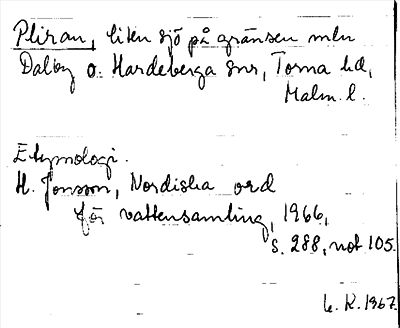 Pliran, liten sjö på gränsen mln
Dalby o. Hardeberga snr, Torna hd,
Malm. l.
Etymologi.
H. Jonsson, Nordiska ord
för vattensamling, 1966,
s. 288, not 105.
L. K. 1967.